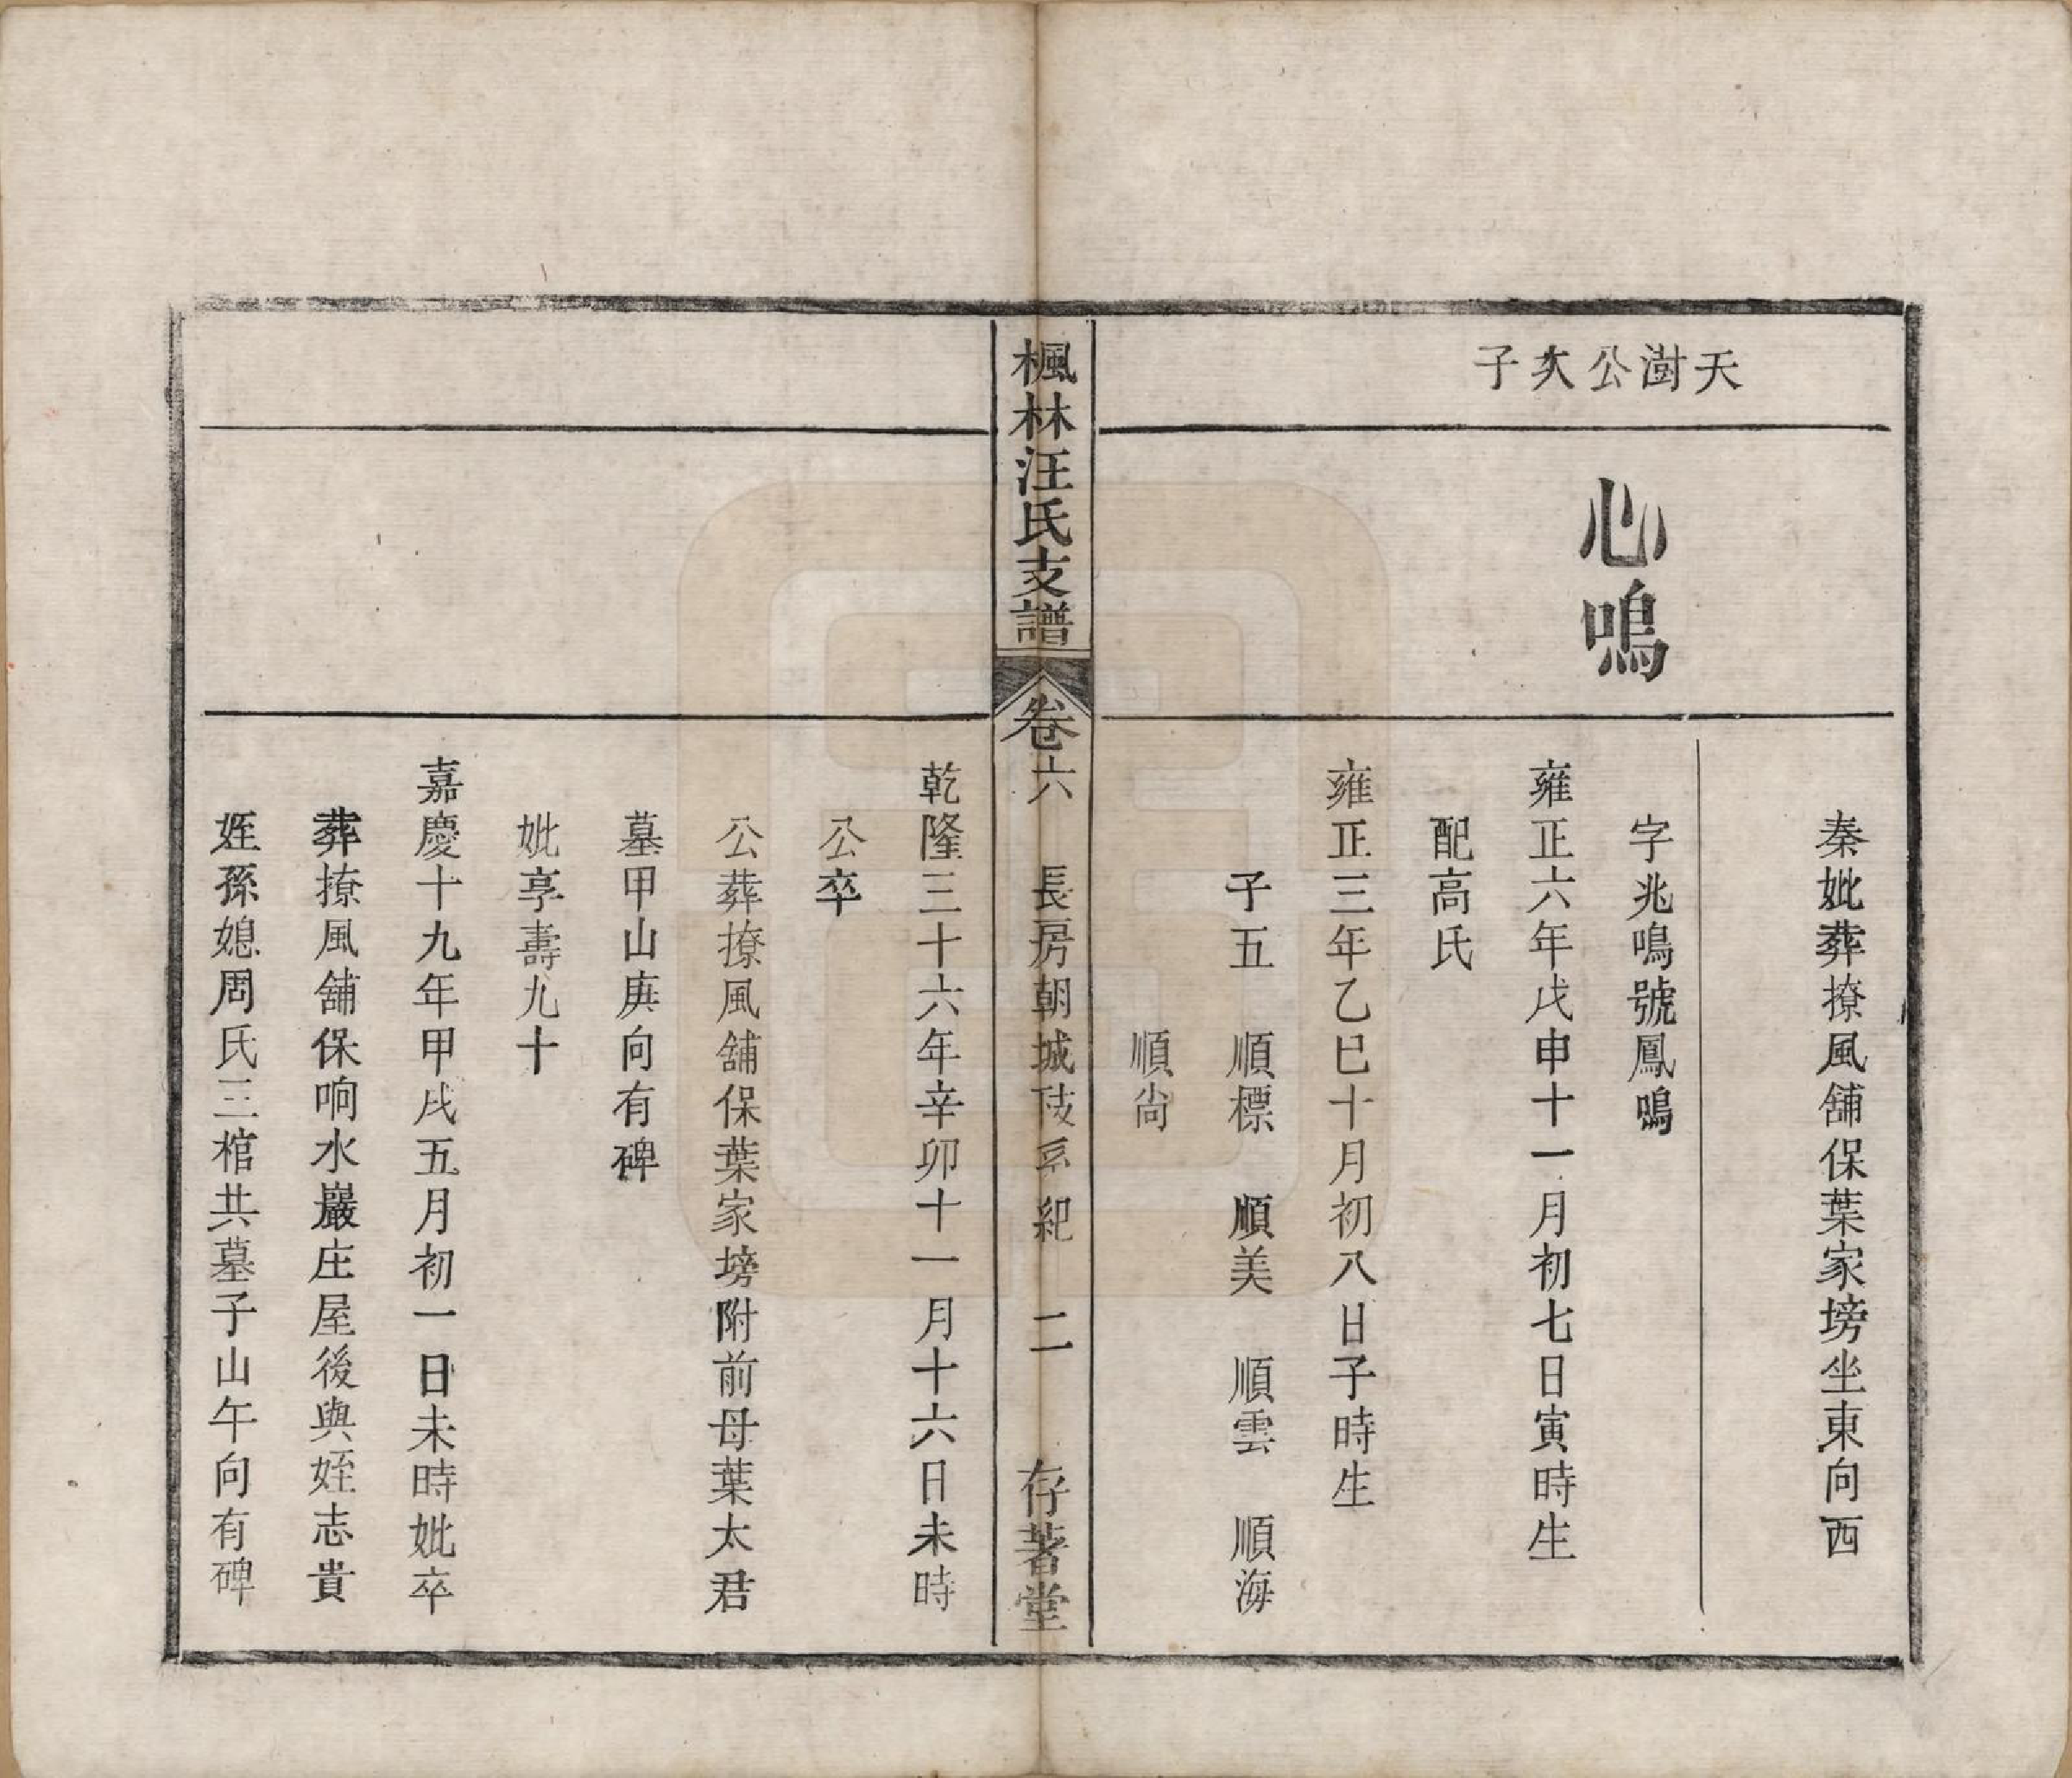 天澍公次子
心鳴
秦妣葬撩風舖保葉家塝坐東向西
字兆鳴號鳳鳴
雍正六年戊申十一月初七日寅時生
配高氏
雍正三年乙巳十月初八日子時生
子五　順標　順美　順雲　順海
順尙
楓林汪氏支譜　卷六　長房朝城技系紀　二　存著堂
乾隆三十六年辛卯十一月十六日未時
公卒
公葬撩風舖保葉家塝附前母葉太君
墓甲山庚向有碑
妣享壽九十
嘉慶十九年甲戌五月初一日未時妣卒
葬撩風舖保响水巖庄屋後與姪志貴
姪孫媳周氏三棺共墓子山午向有碑